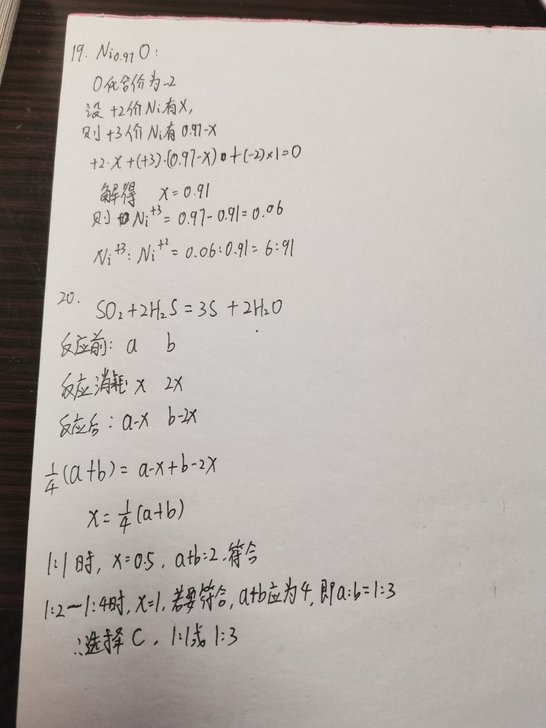 19. Ni0.97O:
O化合价为-2
设 +2价Ni有x,
则 +3价Ni有 0.97-x
+2·x+(+3)·(0.97-x)+(-2)×1=0
解得 x=0.91
则 Ni⁺³=0.97-0.91=0.06
Ni⁺³:Ni⁺²=0.06:0.91=6:91
20. SO₂+2H₂S=3S+2H₂O
反应前: a b
反应消耗: x 2x
反应后: a-x b-2x
1/4(a+b)=a-x+b-2x
x=1/4(a+b)
1:1时, x=0.5, a+b=2.符合
1:2~1:4时, x=1, 若要符合, a+b应为4, 即a:b=1:3
∴选择C, 1:1或1:3